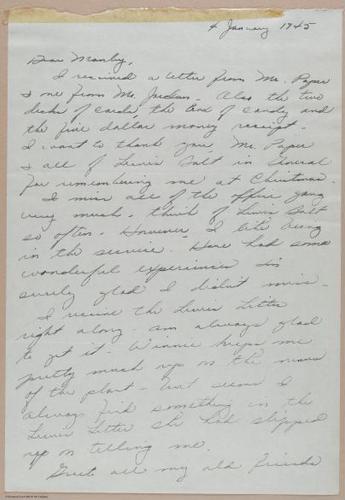 4 January 1945
Dear Manley,
I received a letter from Mr. Paper
& one from Mr. Jordan. Also the two
decks of cards, the box of candy and
the five dollar money receipt.
I want to thank you, Mr. Paper
& all of Lewis Salt in General
for remembering me at Christmas.
I miss all of the office gang
very much. Think of Lewis Salt
so often. However, I like being
in the service. Have had some
wonderful experiences I'm
surely glad I didn't miss.
I receive the Lewis Letter
right along. Am always glad
to get it. Winnie keeps me
pretty much up on the news
of the plant - but seems I
always find something in the
Lewis Letter she had slipped
up on telling me.
Greet all my old friends